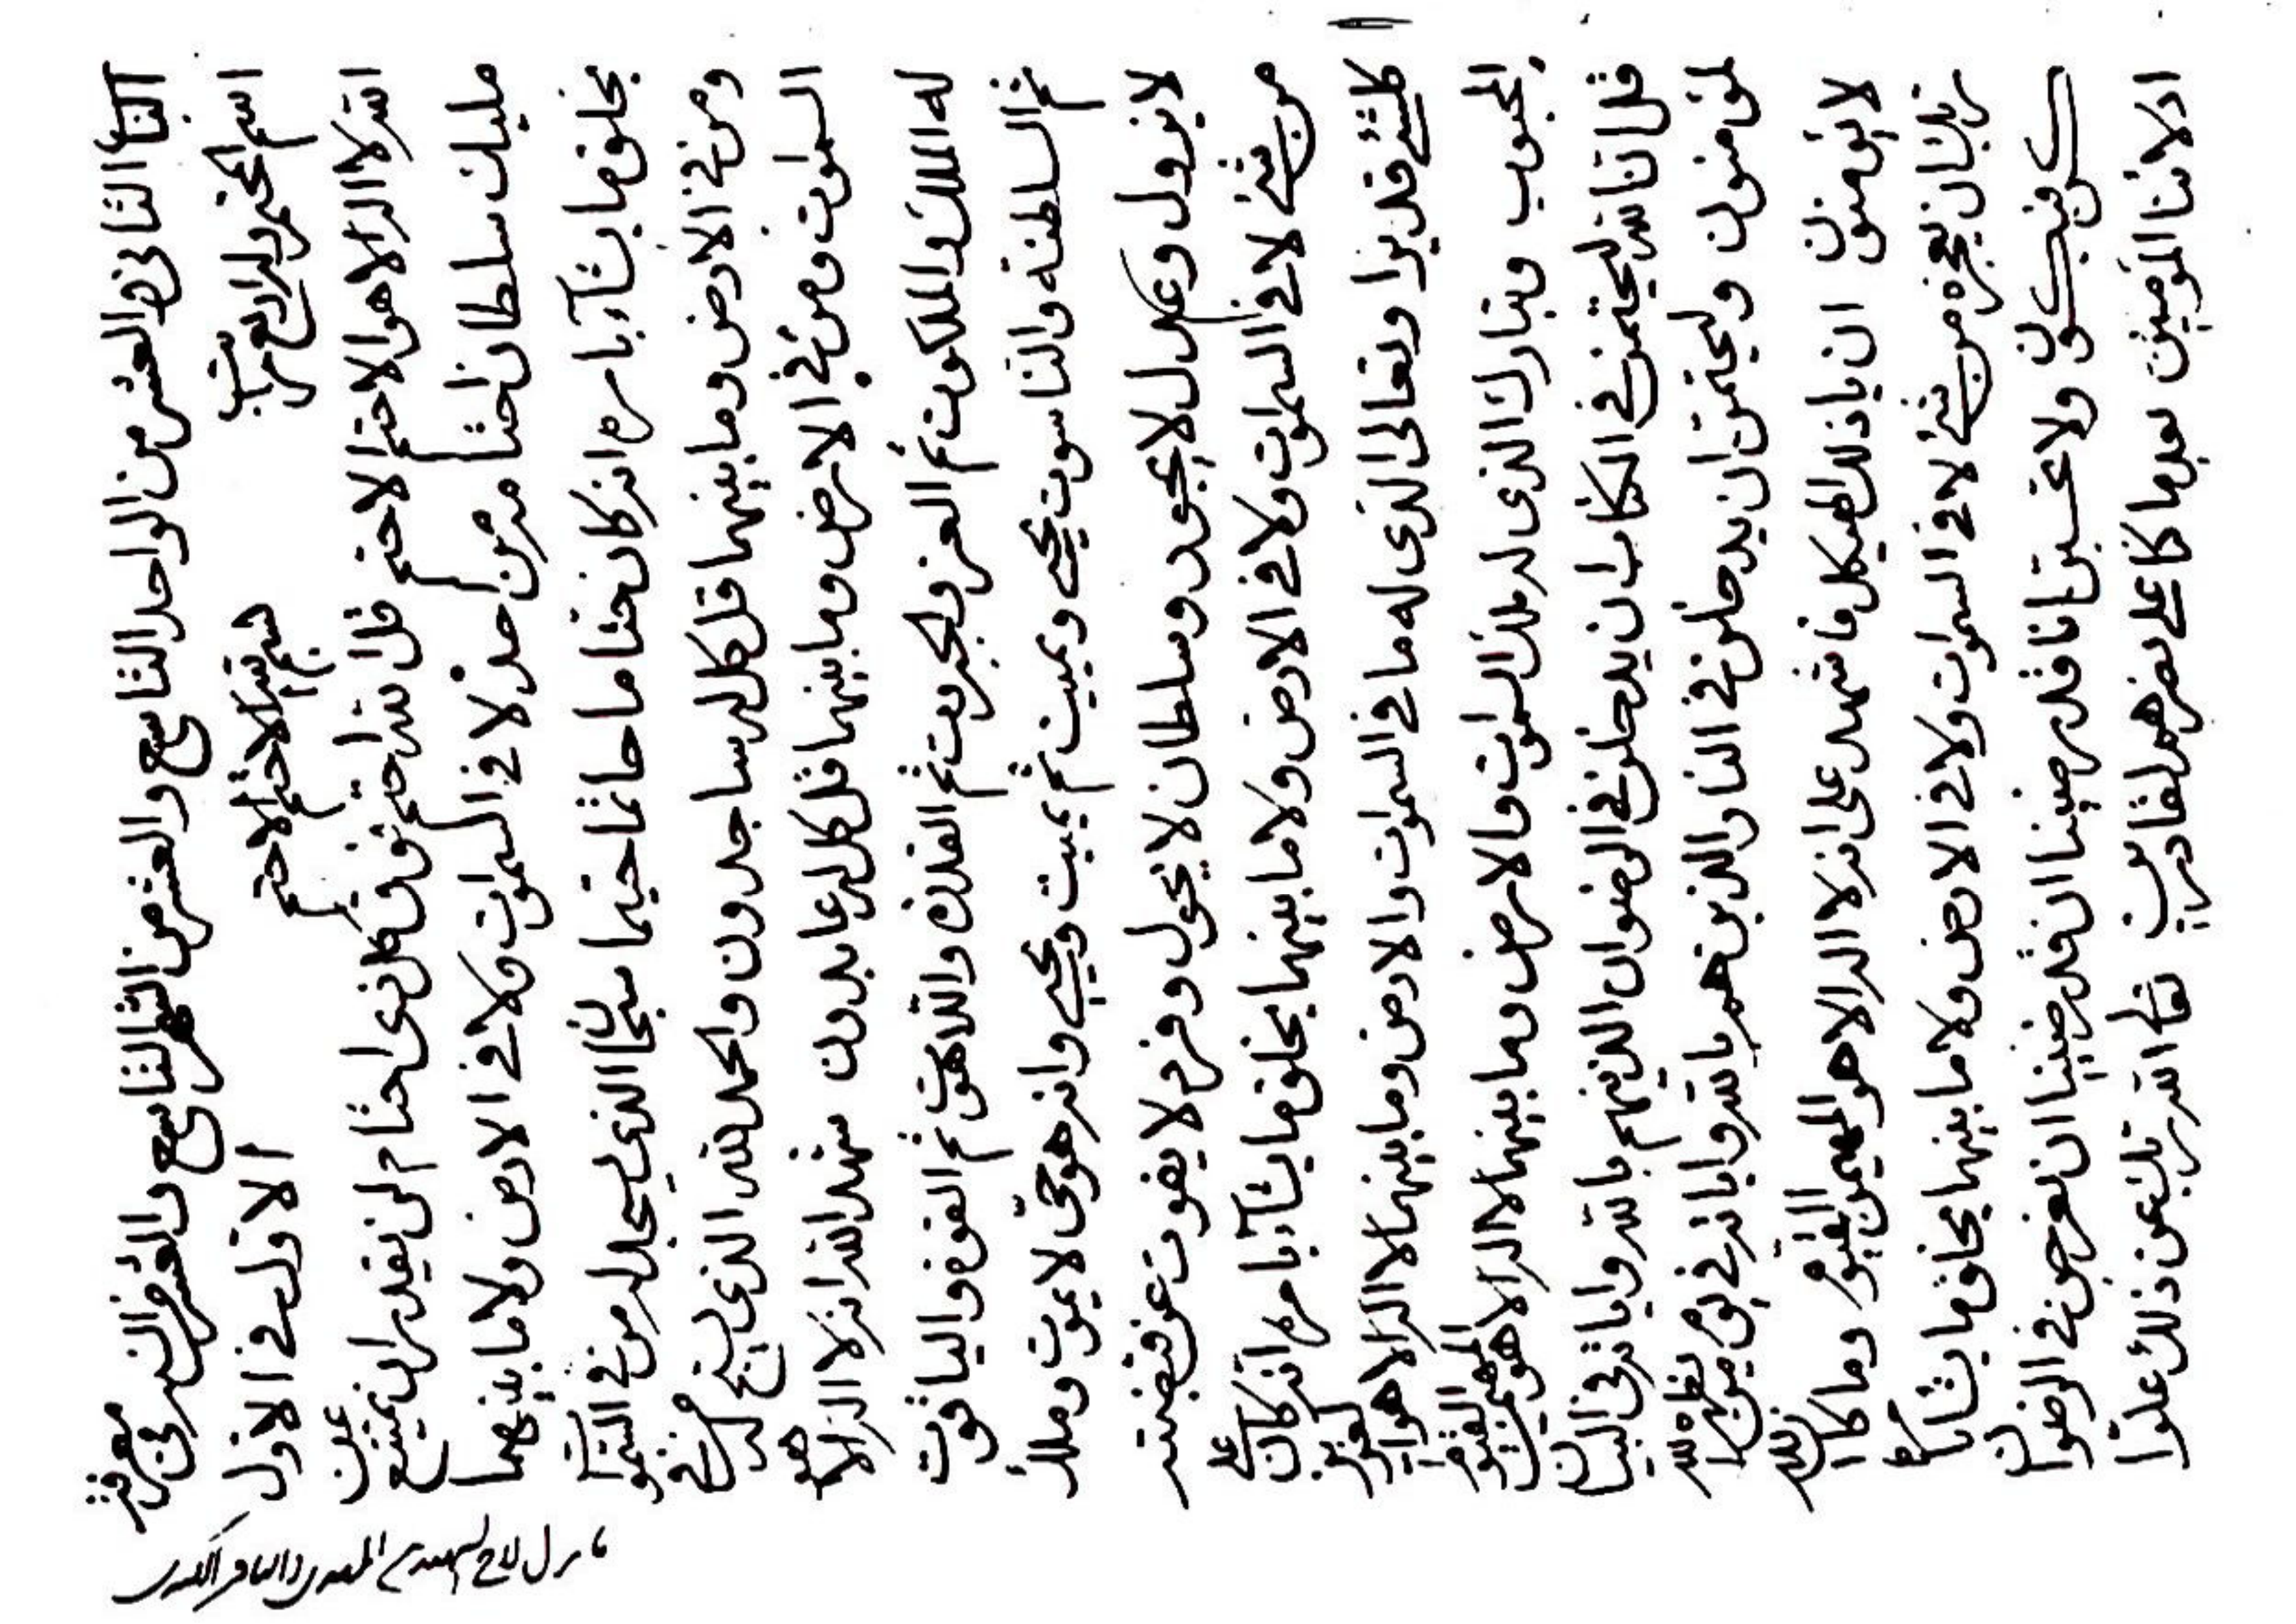 الباب الثانی و العشر من الواحد التاسع و العشر من الشهر التاسع و العشر من السنه فی معرفة
اسم الختم و له اربع مراتب الاول فی الاول
بسم الله الاختم الاختم
الله لا اله الا هو الاختم الاختم قل الله اختم فوق کل ذی اختام لن یقدر ان یمتنع عن
ملیک سلطان اختامه من احد لا فی السموات و لا فی الارض و لا ما بینهما
یخلق ما یشاء بامره انه کان ختاما خاتما ختیما سبحان الذی یسجد له من فی السموات
و من فی الارض و ما بینهما قل کل له ساجدون و الحمد لله الذی یسبح له من فی
السموات و من فی الارض و ما بینهما قل کل له عابدون شهد الله انه لا اله الا هو
له الملک و الملکوت ثم العز و الجبروت ثم القدرة و اللاهوت ثم القوة و الیاقوت
ثم السلطنة و الناسوت یحیی و یمیت ثم یمیت و یحیی و انه هو حی لا یموت و ملک
لا یزول و عدل لا یجور و سلطان لا یحول و فرد لا یفوت عن قبضته
من شیء لا فی السموات و لا فی الارض و لا ما بینهما یخلق ما یشاء بامره انه کان علی
کلشیء قدیرا و تعالی الذی له ما فی السموات و الارض و ما بینهما لا اله الا هو العزیز
المحبوب و تبارک الذی له ملک السموات و الارض و ما بینهما لا اله الا هو المهیمن القیوم
قل انا لله لیختمن فی الکتاب ان یدخلن فی الرضوان الذینهم بالله و ایاته فی البیان
لموقنون و لیختمن ان یدخلن فی النار و الذین هم بالله و ایاته فی یوم من یظهره الله
لا یؤمنون ان یا ذلک الهیکل فاشهد علی انه لا اله الا هو المهیمن القیوم و ما کان الله
ربک ان یعجزه من شیء لا فی السموات و لا فی الارض و لا ما بینهما یخلق ما یشاء
کن فیکون و لا تحسبن انا قد رضینا ان نعرجن فی الرضوان
اولائنا المؤمنین بعد ما کنا علی نصرهم لقادرین تعالی الله ربک عن ذلک علوا